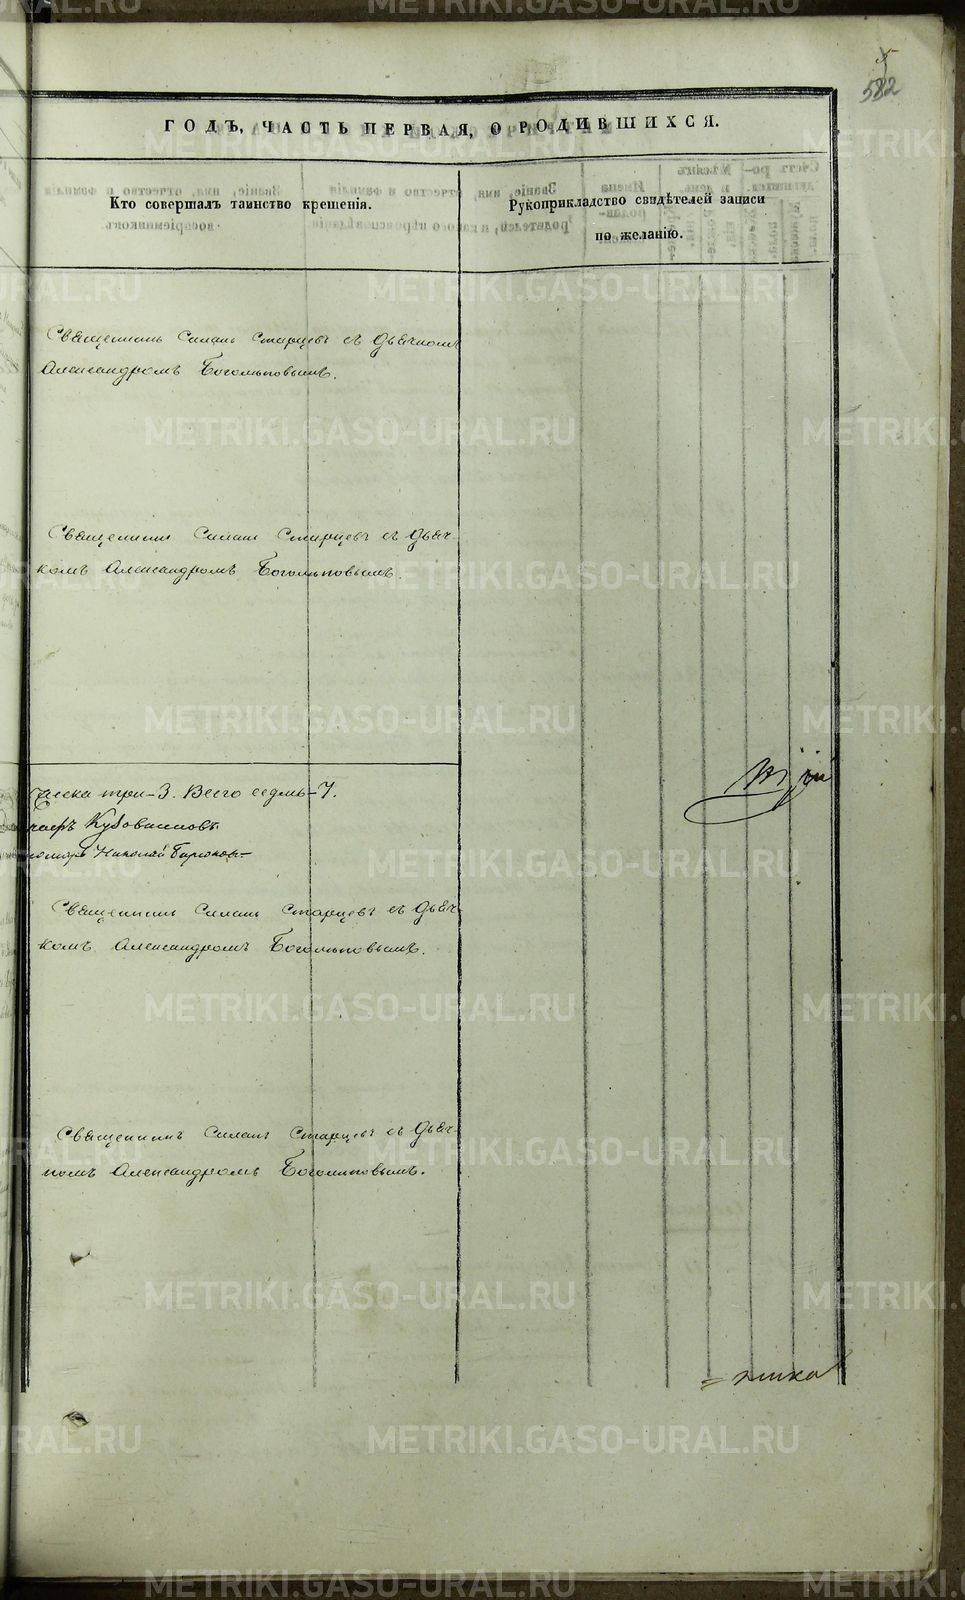 582
ГОДЪ, ЧАСТЬ ПЕРВАЯ, О РОДИВШИХСЯ.
Кто совершалъ таинство крещенія.
Рукоприкладство свидѣтелей записи
по желанію.
Священникъ Силанъ Старцевъ съ Дьячкомъ
Александромъ Боголѣповымъ.
Священникъ Силанъ Старцевъ съ Дьяч-
комъ Александромъ Боголѣповымъ.
женска три–3. Всего седмь–7.
Кудовшновъ
Николай
Священникъ Силанъ Старцевъ съ Дьяч-
комъ Александромъ Боголѣповымъ.
Священникъ Силанъ Старцевъ съ Дьяч-
комъ Александромъ Боголѣповымъ.
METRIKI.GASO-URAL.RU